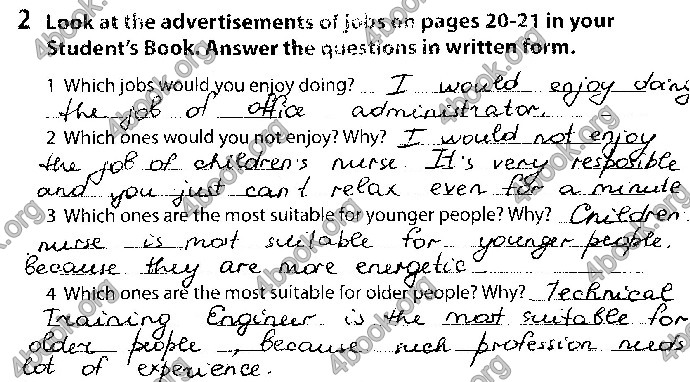 2 Look at the advertisements of jobs on pages 20-21 in your
Student's Book. Answer the questions in written form.
1 Which jobs would you enjoy doing? I would enjoy doing
the job of office administrator.
2 Which ones would you not enjoy? Why? I would not enjoy
the job of children's nurse. It's very resposible
and you just can't relax even for a minute
3 Which ones are the most suitable for younger people? Why? Children
nurse is most suitable for younger people,
because they are more energetic
4 Which ones are the most suitable for older people? Why? Technical
Training Engineer is the most suitable for
older people, because such profession needs
lot of experience.
4book.org
4book.org
4book.org
4book.org
4book.org
4book.org
4book.org